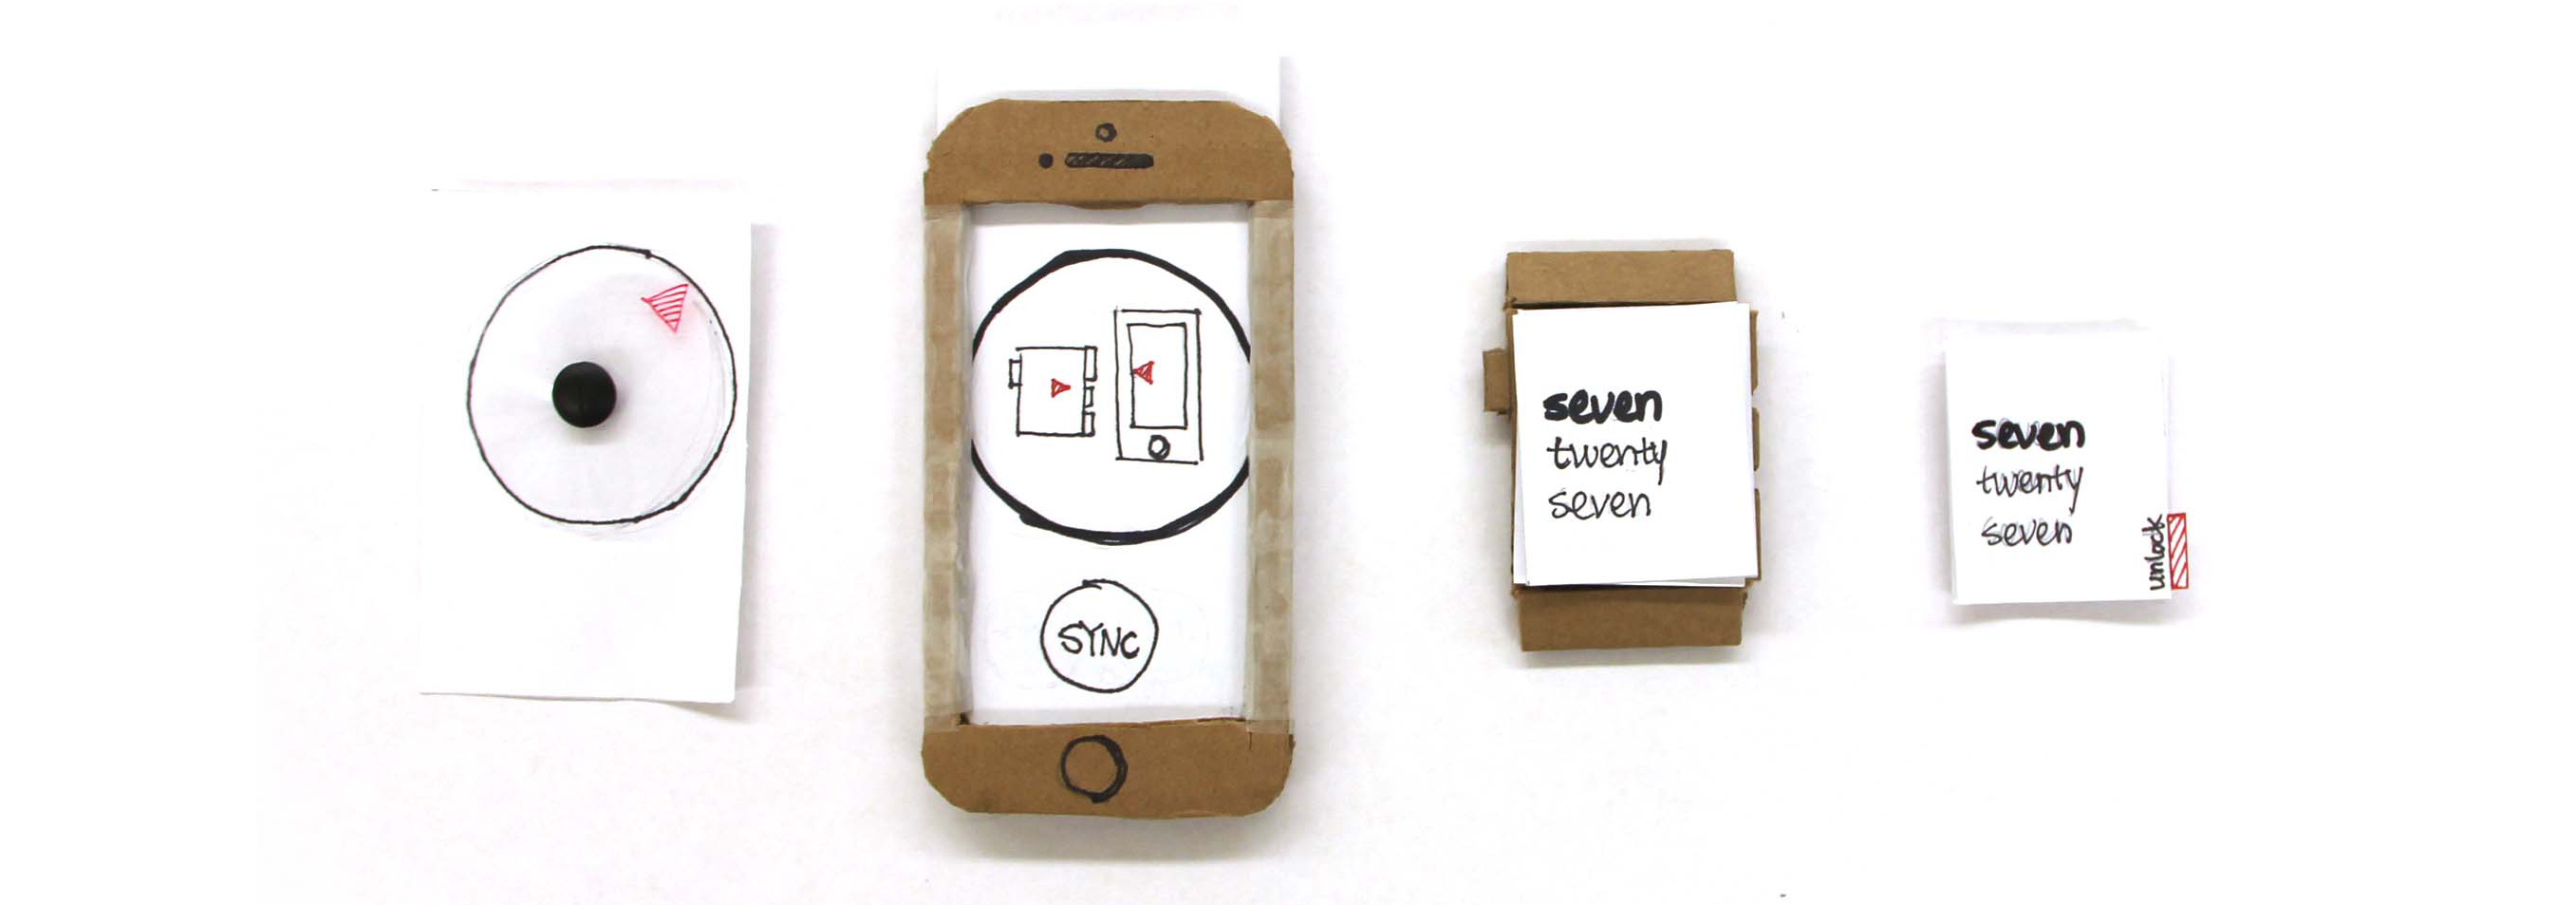 SYNC
seven
twenty
seven
seven
twenty
seven
unlock